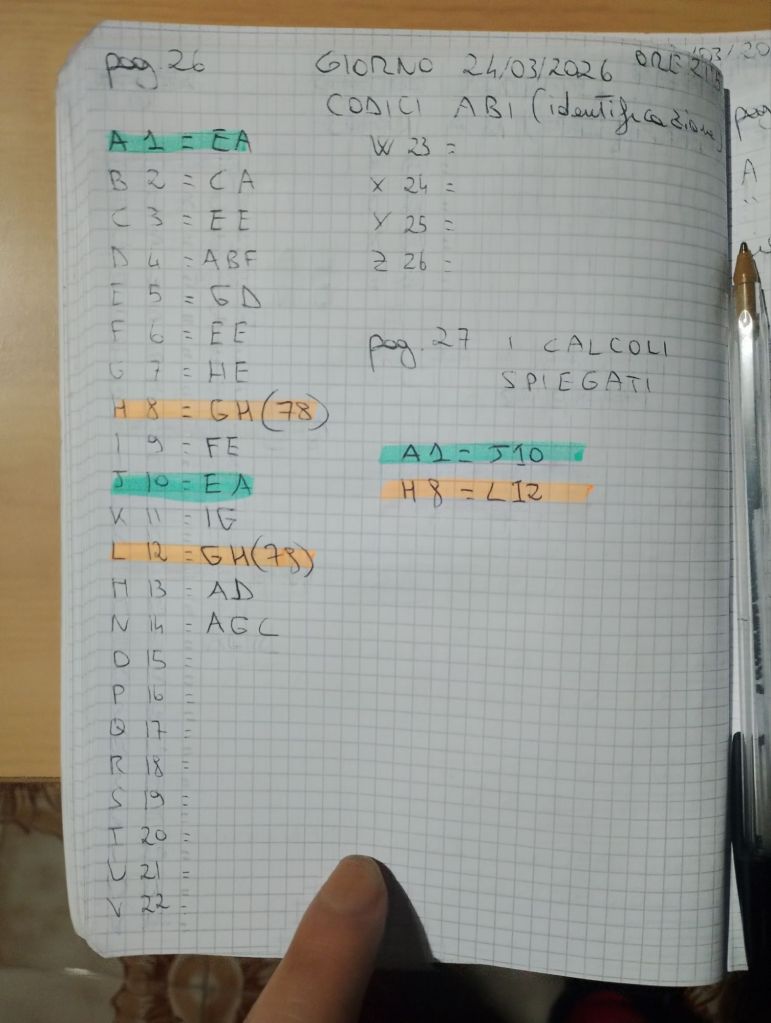 pag. 26
GIORNO 24/03/2026 ORE
CODICI ABI (identificazione)
A 1 = EA
B 2 = CA
C 3 = EE
D 4 = ABF
E 5 = GD
F 6 = EE
G 7 = HE
H 8 = GH (78)
I 9 = FE
J 10 = EA
K 11 = IG
L 12 = GH (78)
M 13 = AD
N 14 = AGC
O 15 =
P 16 =
Q 17 =
R 18 =
S 19 =
T 20 =
U 21 =
V 22 =
W 23 =
X 24 =
Y 25 =
Z 26 =
pag. 27 I CALCOLI
SPIEGATI
A1 = J10
H8 = L12
/03/20
pag
A